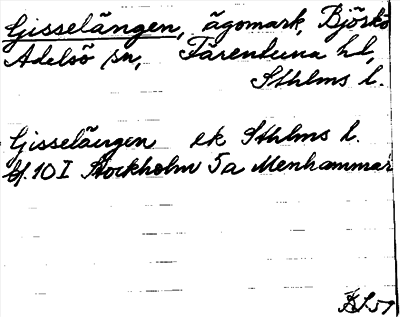 Gisselängen, ägomark, Björkö
Adelsö sn, Färentuna hd,
Sthlms l.
Gisselängen ek Sthlms l.
bl. 10 I Stockholm 5a Menhammar